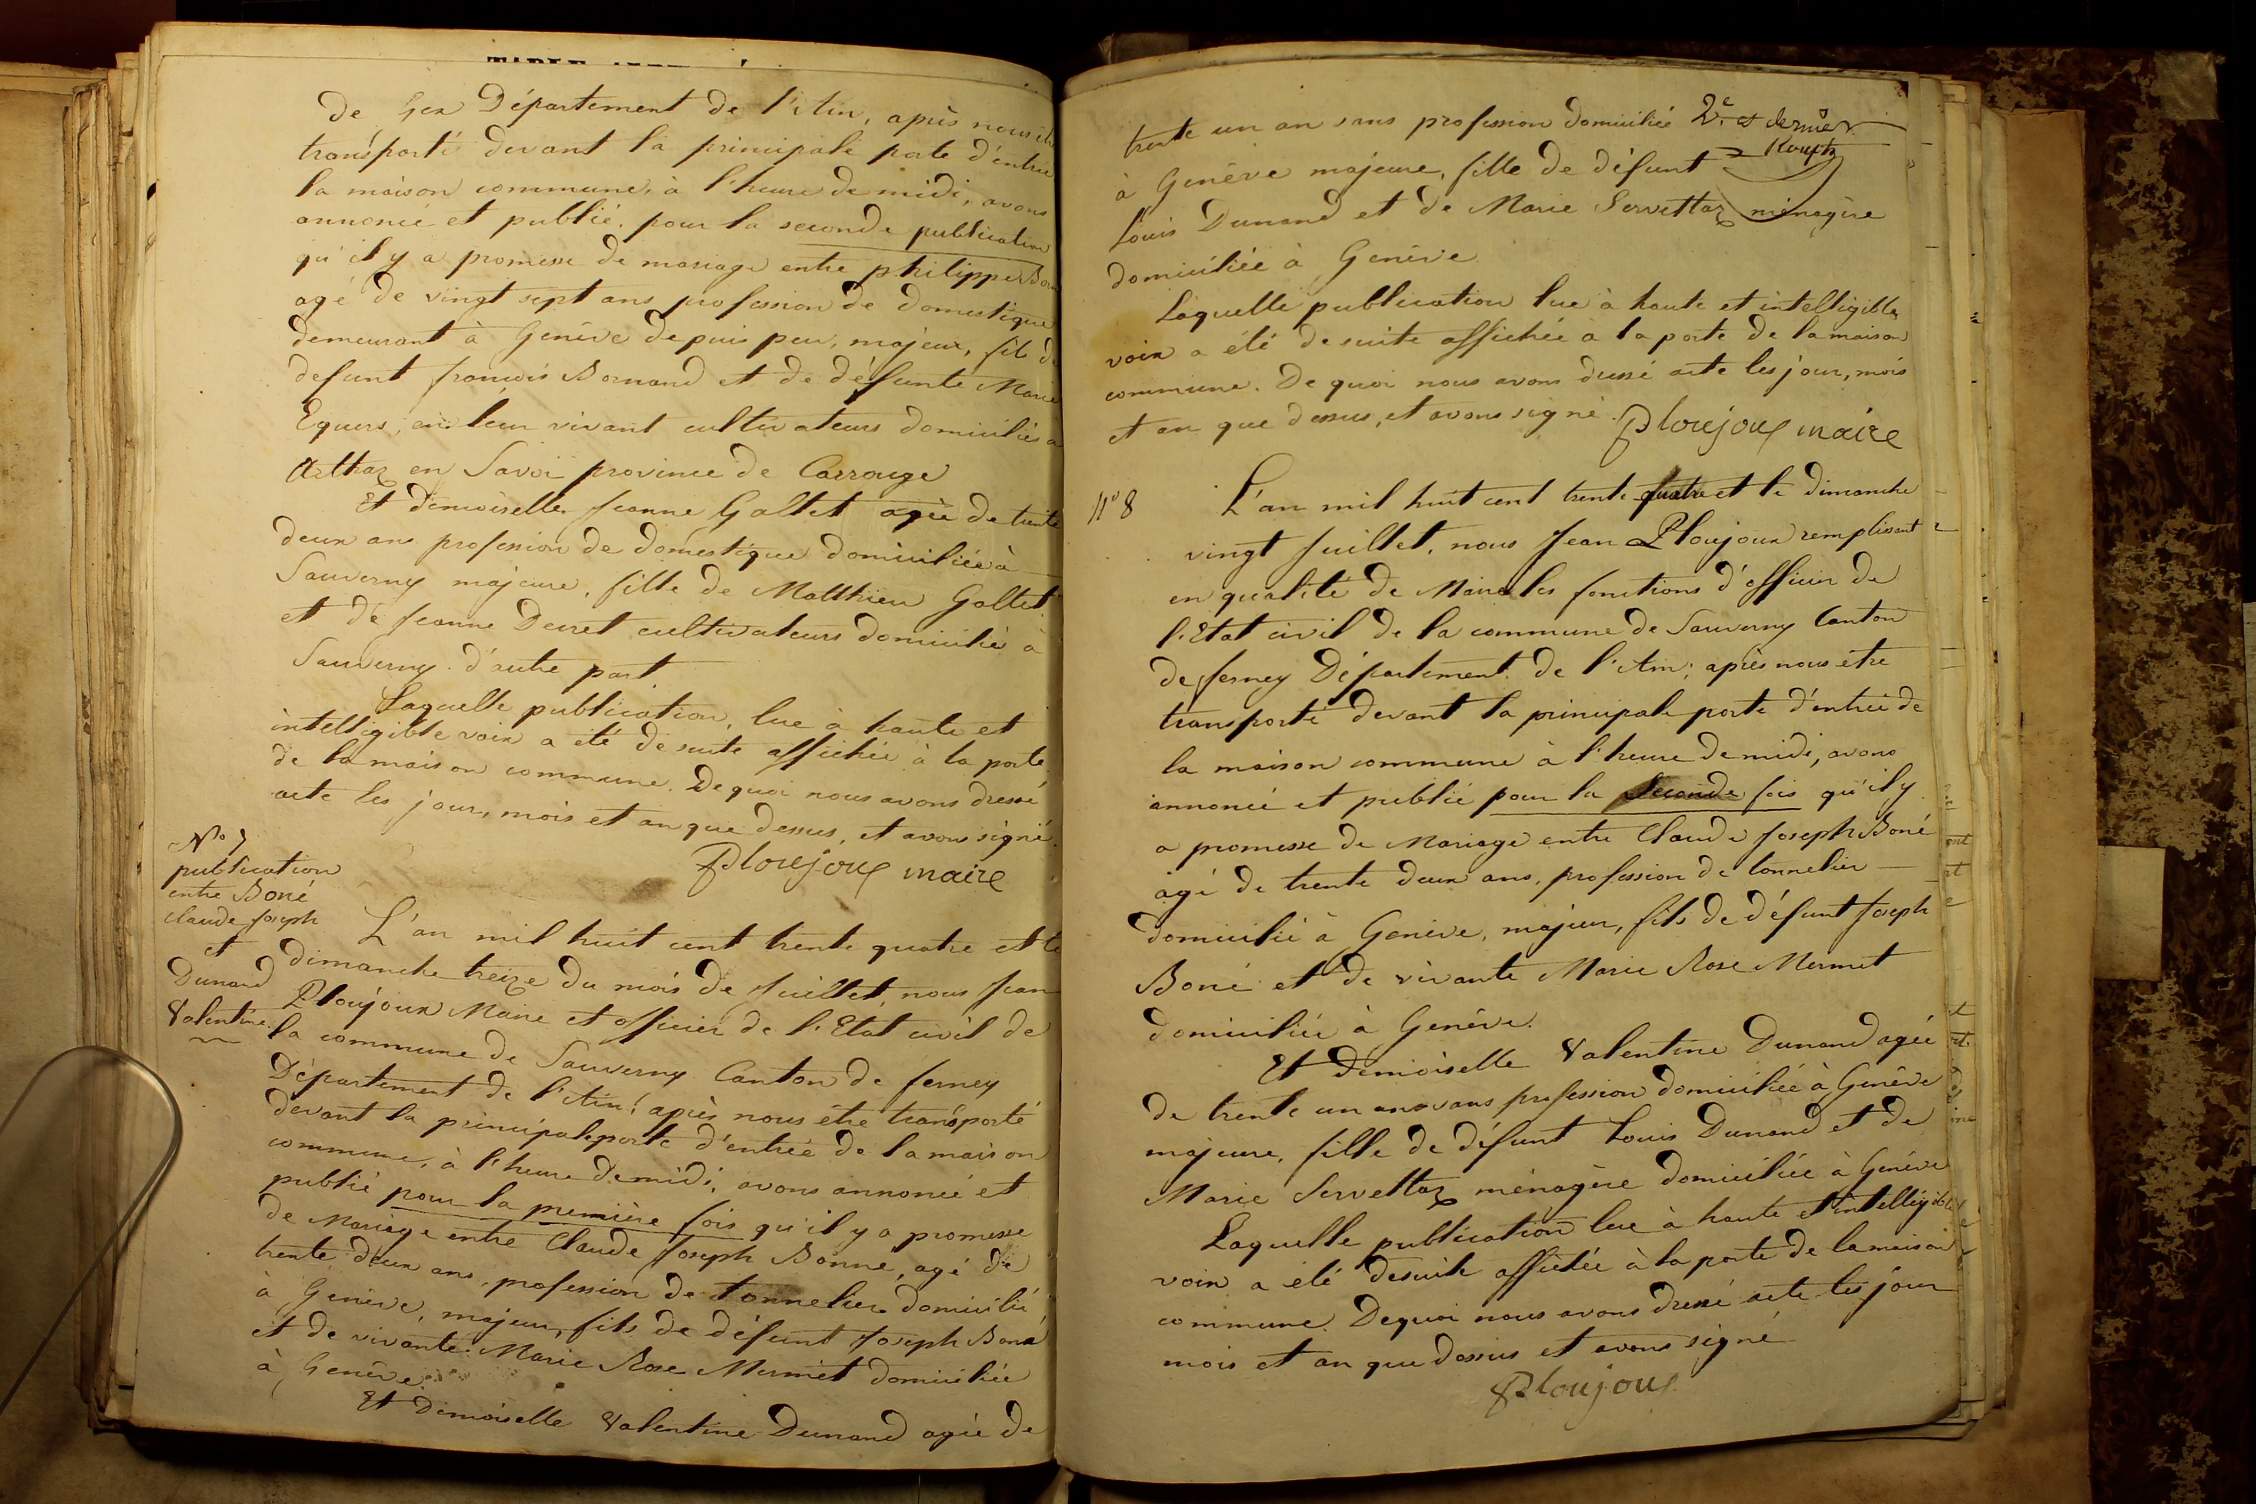 de Gex Département de l'Ain, après nous être
transporté devant la principale porte d'entrée
la maison commune, à l'heure de midi, avons
annoncé et publié, pour la seconde publication
qu'il y a promesse de mariage entre philippe
agé de vingt sept ans profession de domestique
demeurant à Genève depuis peu, majeur, fils de
defunt françois Bornand et de défunte Marie
Equers, en leur vivant cultivateurs domiciliés à
Arthaz en Savoi province de Carrouge
Et demoiselle Jeanne Gallet agée de trente
deux ans profession de domestique domiciliée à
Sauverny majeure, fille de Matthieu Gallet
et de Jeanne Decret cultivateurs domicilié à
Sauverny d'autre part
Laquelle publication, lue à haute et
intelligible voix a été de suite affichée à la porte
de la maison commune. De quoi nous avons dressé
acte les jour, mois et an que dessus, et avons signé.
Ploujoux maire
No 7
publication
entre Boné
Claude Joseph
et
Dunand
Valentine
L'an mil huit cent trente quatre et le
dimanche treize du mois de Juillet, nous Jean
Ploujoux Maire et officier de l'Etat civil de
la commune de Sauverny Canton de ferney
Département de l'Ain; après nous être transporté
devant la principale porte d'entrée de la maison
commune, à l'heure de midi, avons annoncé et
publié pour la première fois qu'il y a promesse
de Mariage entre Claude Joseph Bonné, agé de
trente deux ans, profession de tonnelier domicilié
à Genève, majeur, fils de défunt Joseph Boné
et de vivante Marie Rose Mermet domiciliée
à Genève
Et Demoiselle Valentine Dunand agée de
trente un an sans profession domiciliée 2e et dernier
à Genève majeure, fille de défunt
Louis Dunand et de Marie Servettaz ménagère
domiciliée à Genève
Laquelle publication lue à haute et intelligible
voix a été de suite affichée à la porte de la maison
commune. De quoi nous avons dressé acte les jour, mois
et an que dessus, et avons signé. Ploujoux maire
No 8
L'an mil huit cent trente quatre et le dimanche
vingt Juillet, nous Jean Ploujoux remplissant
en qualité de Maire les fonctions d'officier de
l'Etat civil de la commune de Sauverny Canton
de ferney Département de l'Ain; après nous être
transporté devant la principale porte d'entrée de
la maison commune à l'heure de midi, avons
annoncé et publié pour la Seconde fois qu'il y
a promesse de Mariage entre Claude Joseph Boné
agé de trente deux ans, profession de tonnelier
domicilié à Genève, majeur, fils de défunt Joseph
Boné et de vivante Marie Rose Mermet
domiciliée à Genève.
Et Demoiselle Valentine Dunand agée
de trente un an sans profession domiciliée à Genève
majeure, fille de défunt Louis Dunand et de
Marie Servettaz ménagère domiciliée à Genève
Laquelle publication lue à haute et intelligible
voix a été desuite affichée à la porte de la maison
commune. De quoi nous avons dressé acte les jour
mois et an que dessus et avons signé
Ploujoux